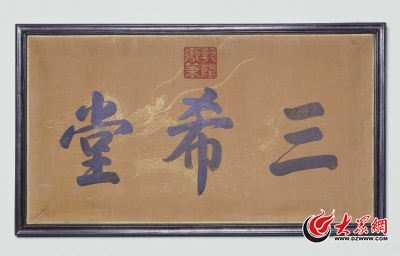 三希堂
乾隆御筆
大众網
WWW.DZWWW.COM